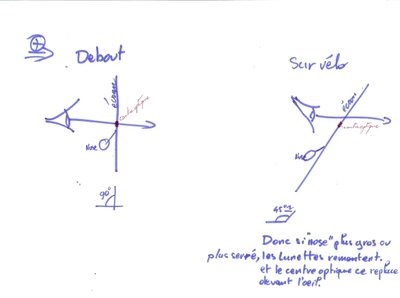 Debout
Sur vélo
écran
écran
centre optique
centre optique
Nose
Nose
90°
45°
Donc si "nose" plus gros ou
plus serré, les lunettes remontent.
et le centre optique se replace
devant l'oeil.